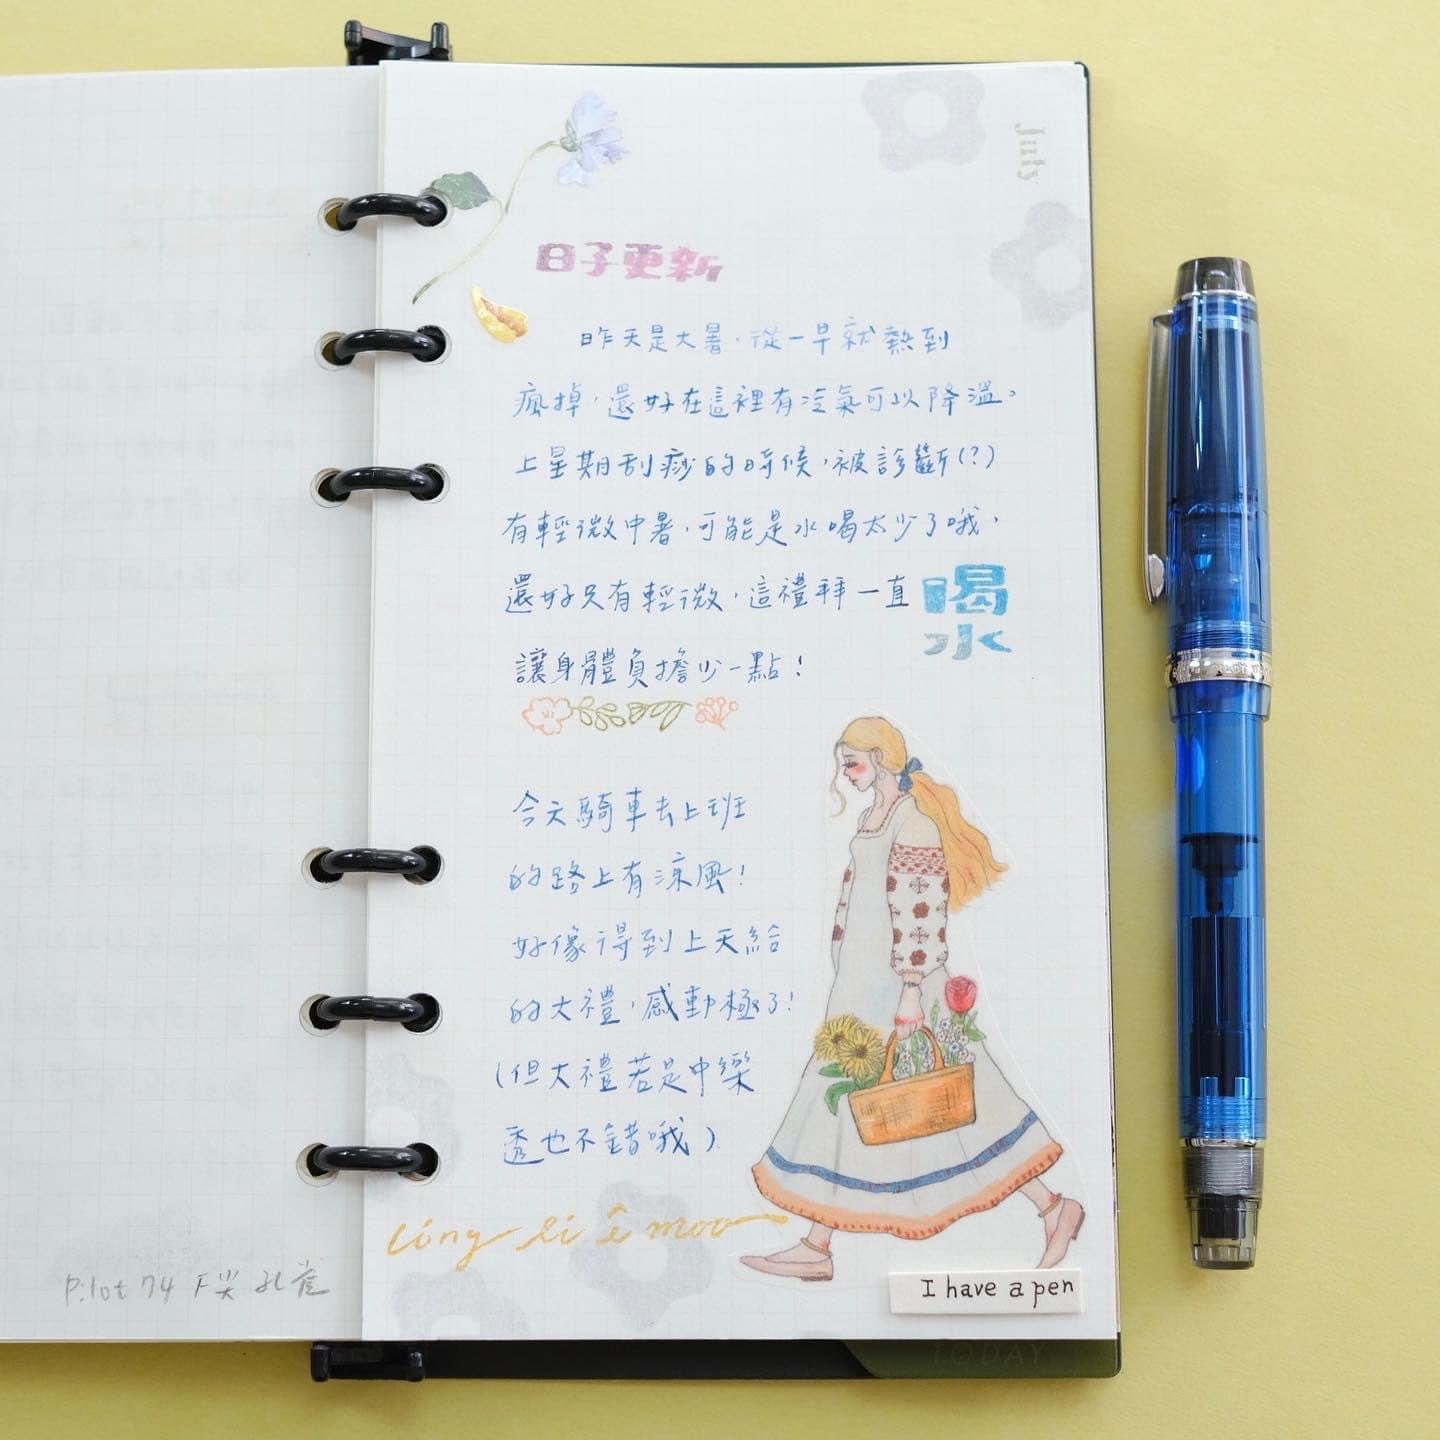 July
日子更新
昨天是大暑,從一早就熱到
瘋掉,還好在這裡有冷氣可以降溫。
上星期刮痧的時候,被診斷(?)
有輕微中暑,可能是水喝太少了哦,
還好只有輕微,這禮拜一直 喝水
讓身體負擔少一點!
今天騎車去上班
的路上有涼風!
好像得到上天給
的大禮,感動極了!
(但大禮若是中樂
透也不錯哦)
I have a pen
Pilot 74 F尖 孔雀
TODAY